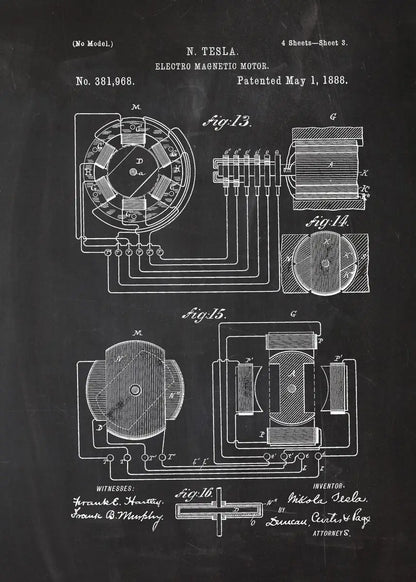 (No Model.)
4 Sheets—Sheet 3.
N. TESLA.
ELECTRO MAGNETIC MOTOR.
No. 381,968.
Patented May 1, 1888.
M
Fig. 13.
G
D
a
A
K
K'
Fig. 14.
Fig. 15.
M
G
N
N'
P
P'
P'
A
P
D
T
T'
T'
T
L'
L
WITNESSES:
INVENTOR.
Frank E. Hartley
Frank B. Murphy.
Fig. 16.
D
Nikola Tesla.
BY
Duncan, Curtis & Page
ATTORNEYS.